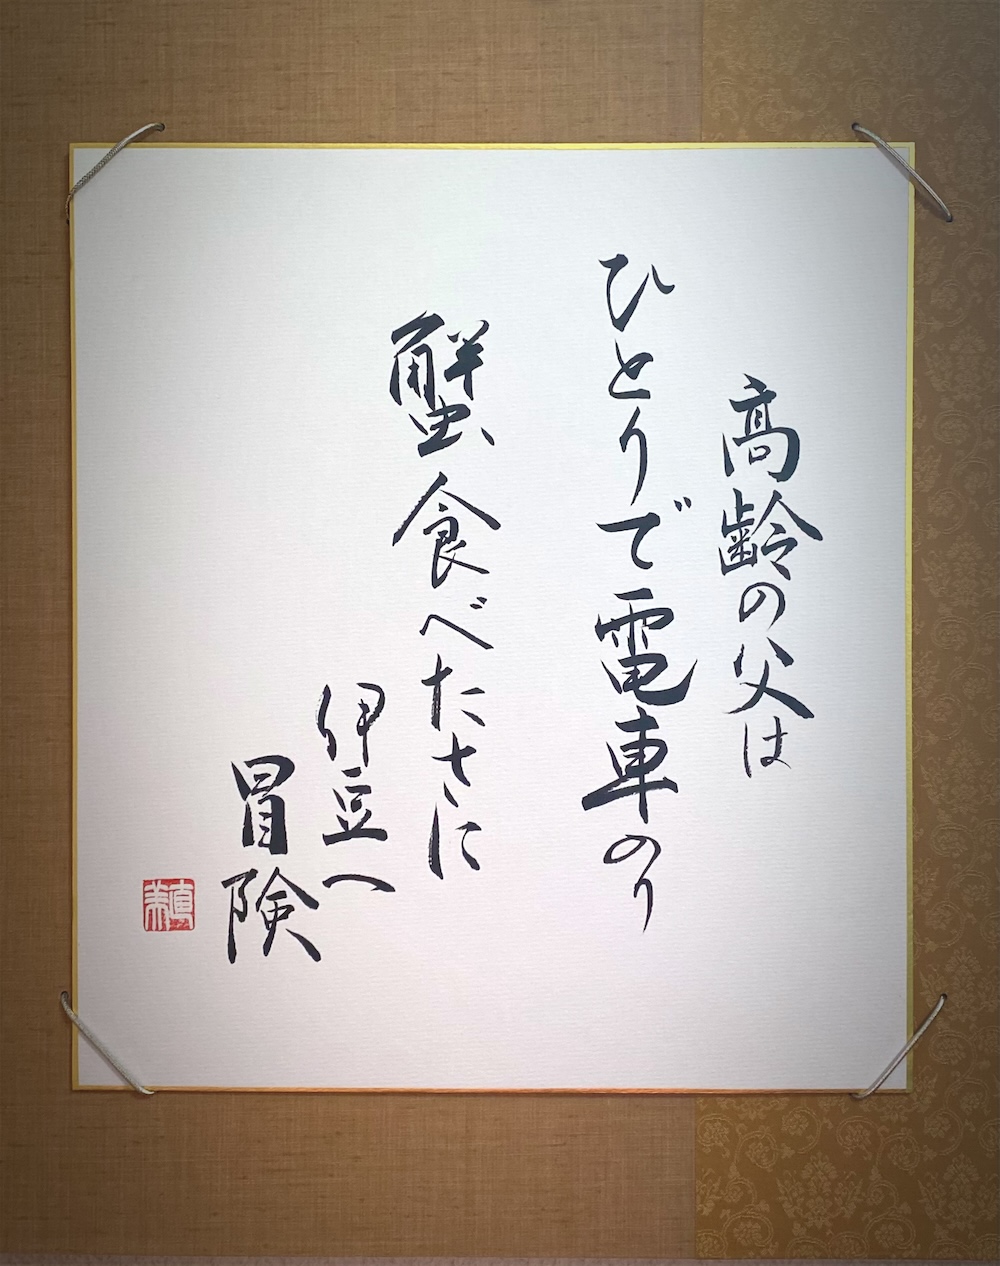 高齢の父は
ひとりで電車のり
蟹食べたさに
伊豆へ
冒険
直美